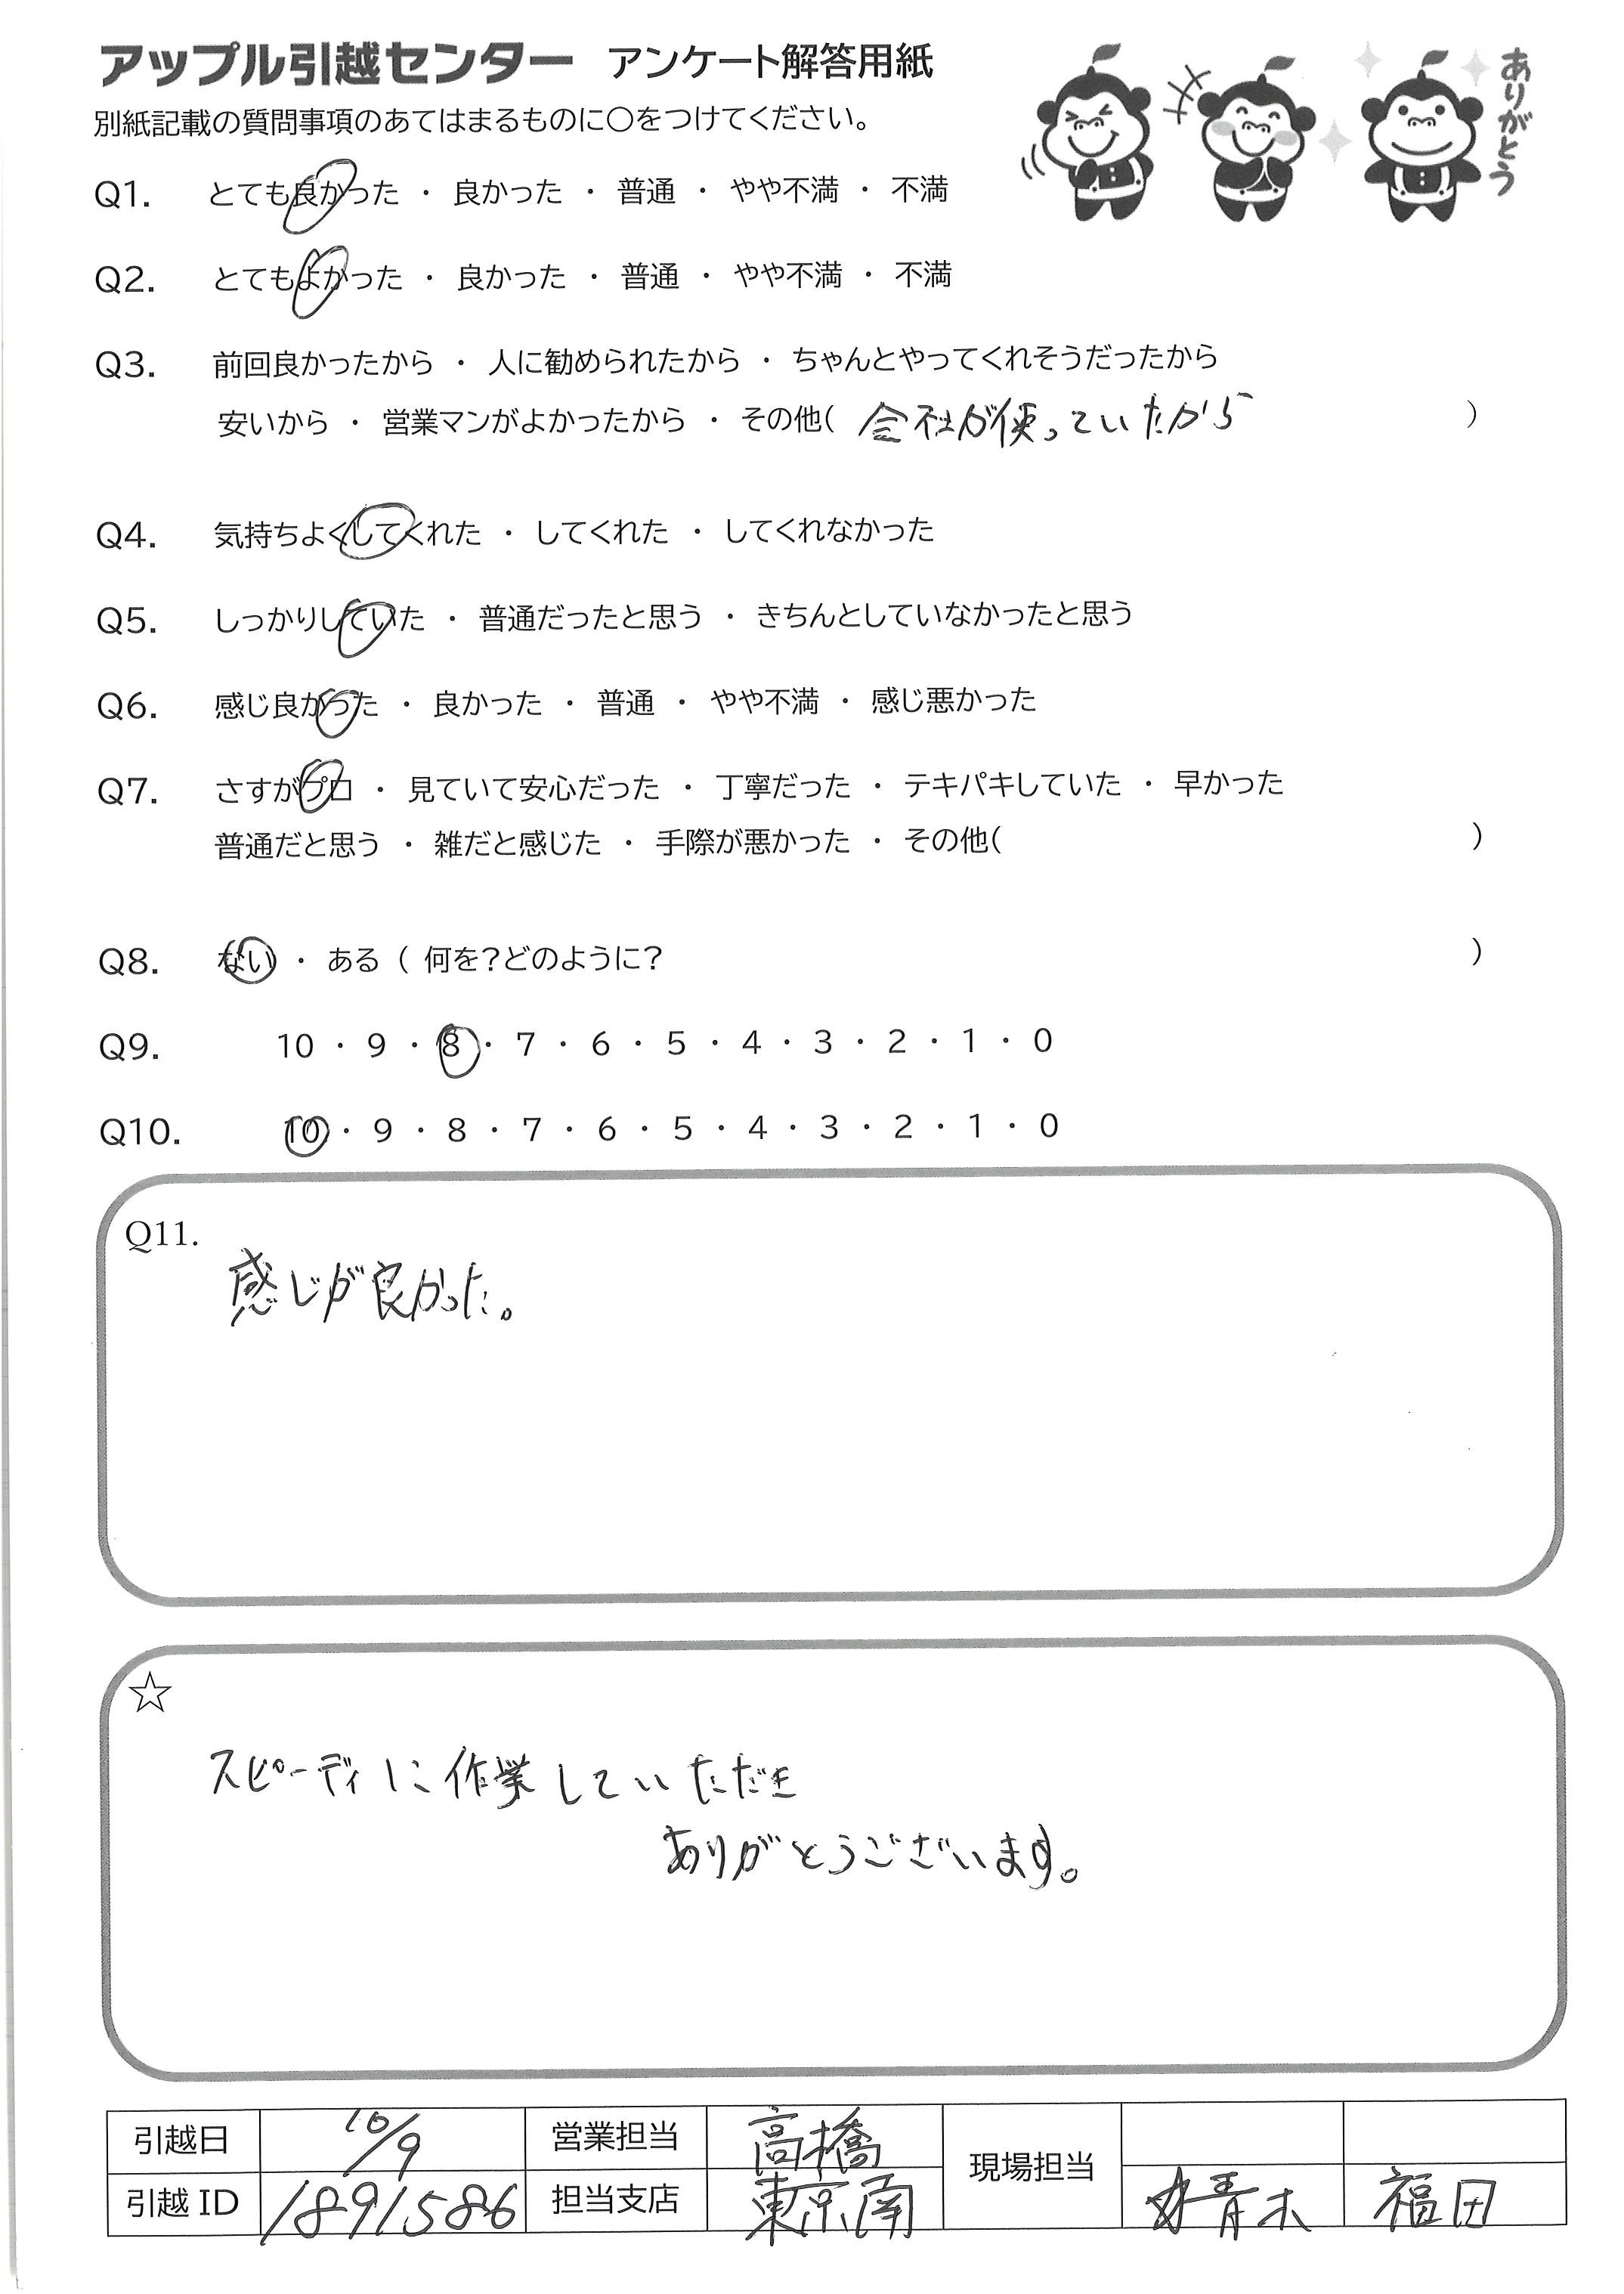 アップル引越センター アンケート解答用紙
別紙記載の質問事項のあてはまるものに○をつけてください。
ありがとう
Q1. とても良かった ・ 良かった ・ 普通 ・ やや不満 ・ 不満
Q2. とてもよかった ・ 良かった ・ 普通 ・ やや不満 ・ 不満
Q3. 前回良かったから ・ 人に勧められたから ・ ちゃんとやってくれそうだったから
安いから ・ 営業マンがよかったから ・ その他( 会社が使っていたから )
Q4. 気持ちよくしてくれた ・ してくれた ・ してくれなかった
Q5. しっかりしていた ・ 普通だったと思う ・ きちんとしていなかったと思う
Q6. 感じ良かった ・ 良かった ・ 普通 ・ やや不満 ・ 感じ悪かった
Q7. さすがプロ ・ 見ていて安心だった ・ 丁寧だった ・ テキパキしていた ・ 早かった
普通だと思う ・ 雑だと感じた ・ 手際が悪かった ・ その他( )
Q8. ない ・ ある ( 何を?どのように? )
Q9. 10 ・ 9 ・ 8 ・ 7 ・ 6 ・ 5 ・ 4 ・ 3 ・ 2 ・ 1 ・ 0
Q10. 10 ・ 9 ・ 8 ・ 7 ・ 6 ・ 5 ・ 4 ・ 3 ・ 2 ・ 1 ・ 0
Q11.
感じが良かった。
☆
スピーディに作業していただき
ありがとうございます。
引越日 10/9 営業担当 高橋 現場担当
引越ID 1891586 担当支店 東京南 青木 福田